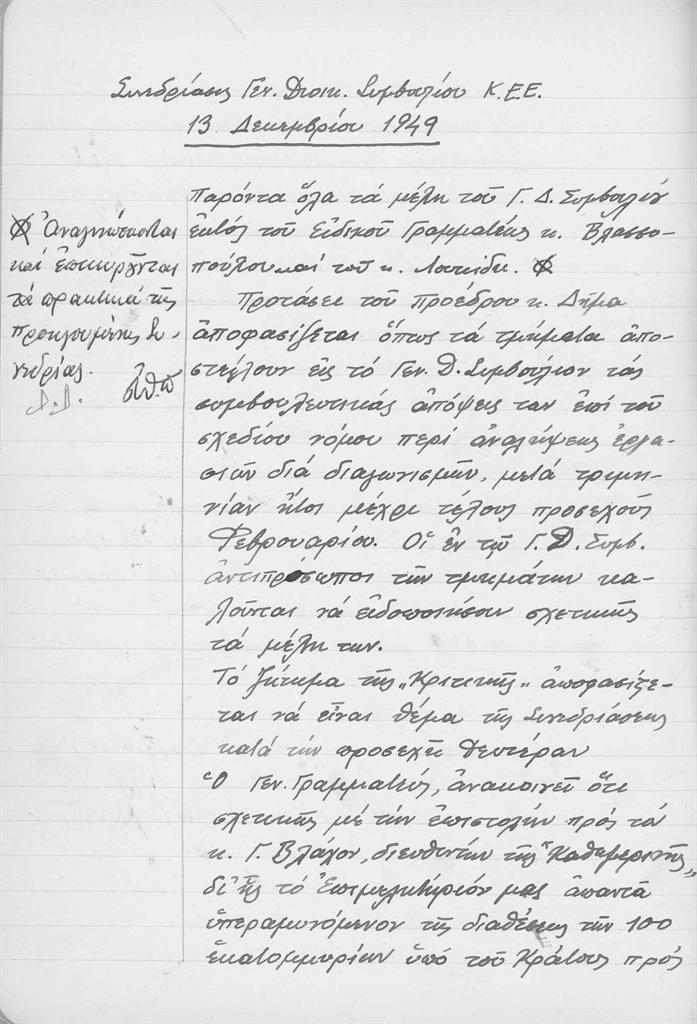 Συνεδρίασις Γεν. Διοικ. Συμβουλίου Κ.Ε.Ε.
13 Δεκεμβρίου 1949
Παρόντα ὅλα τά μέλη τοῦ Γ. Δ. Συμβουλίου
ἐκτός τοῦ Εἰδικοῦ Γραμματέως κ. Βλασσο-
πούλου καί τοῦ κ.
Προτάσει τοῦ Προέδρου κ. Δήμα
ἀποφασίζεται ὅπως τά τμήματα ἀπο-
στείλουν εἰς τό Γεν. Δ. Συμβούλιον τάς
συμβουλευτικάς ἀπόψεις των ἐπί τοῦ
σχεδίου νόμου περί ἀναλήψεως ἐργα-
σιῶν διά διαγωνισμῶν, μετά τριμη-
νίαν ἤτοι μέχρι τέλους προσεχοῦς
Φεβρουαρίου. Οἱ ἐν τῷ Γ. Δ. Συμβ.
ἀντιπρόσωποι τῶν τμημάτων κα-
λοῦνται νά εἰδοποιήσουν σχετικῶς
τά μέλη των.
Τό ζήτημα τῆς „Κριτικῆς„ ἀποφασίζε-
ται νά εἶναι θέμα τῆς Συνεδριάσεως
κατά τήν προσεχῆ Δευτέραν
Ὁ Γεν. Γραμματεύς, ἀνακοινεῖ ὅτι
σχετικῶς μέ τήν ἐπιστολήν πρός τό
κ. Γ. Βλάχον, διευθυντήν τῆς "Καθημερινῆς„
δι' ἧς τό Ἐπιμελητήριόν μας ἀπαντᾶ
ὑπεραμυνόμενον τῆς διαθέσεως τῶν 100
ἑκατομμυρίων ὑπό τοῦ Κράτους πρός
Ἀναγινώσκονται
καί ἐπικυροῦνται
τά πρακτικά τῆς
προηγουμένης Συ-
νεδρίας.